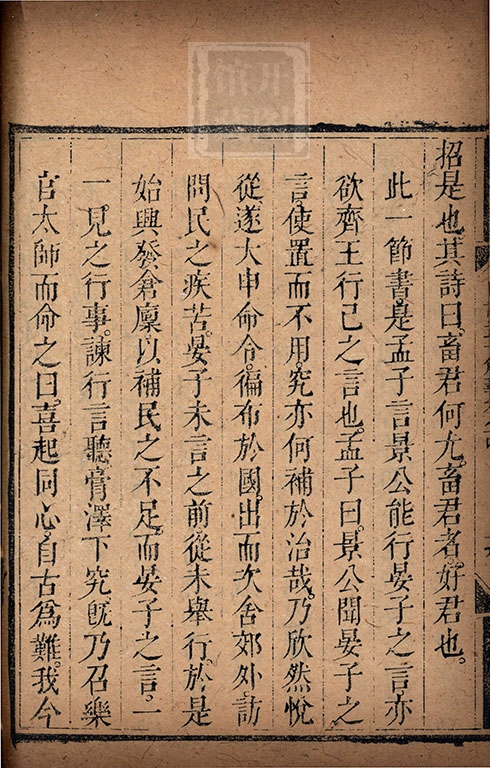 招是也其詩曰畜君何尤畜君者好君也
此一節書是孟子言景公能行晏子之言亦
欲齊王行己之言也孟子曰景公聞晏子之
言使置而不用究亦何補於治哉乃欣然悅
從遂大申命令徧布於國出而次舍郊外訪
問民之疾苦晏子未言之前從未舉行於是
始興發倉廩以補民之不足而晏子之言一
一見之行事諫行言聽膏澤下究旣乃召樂
官太師而命之曰喜起同心自古爲難我今